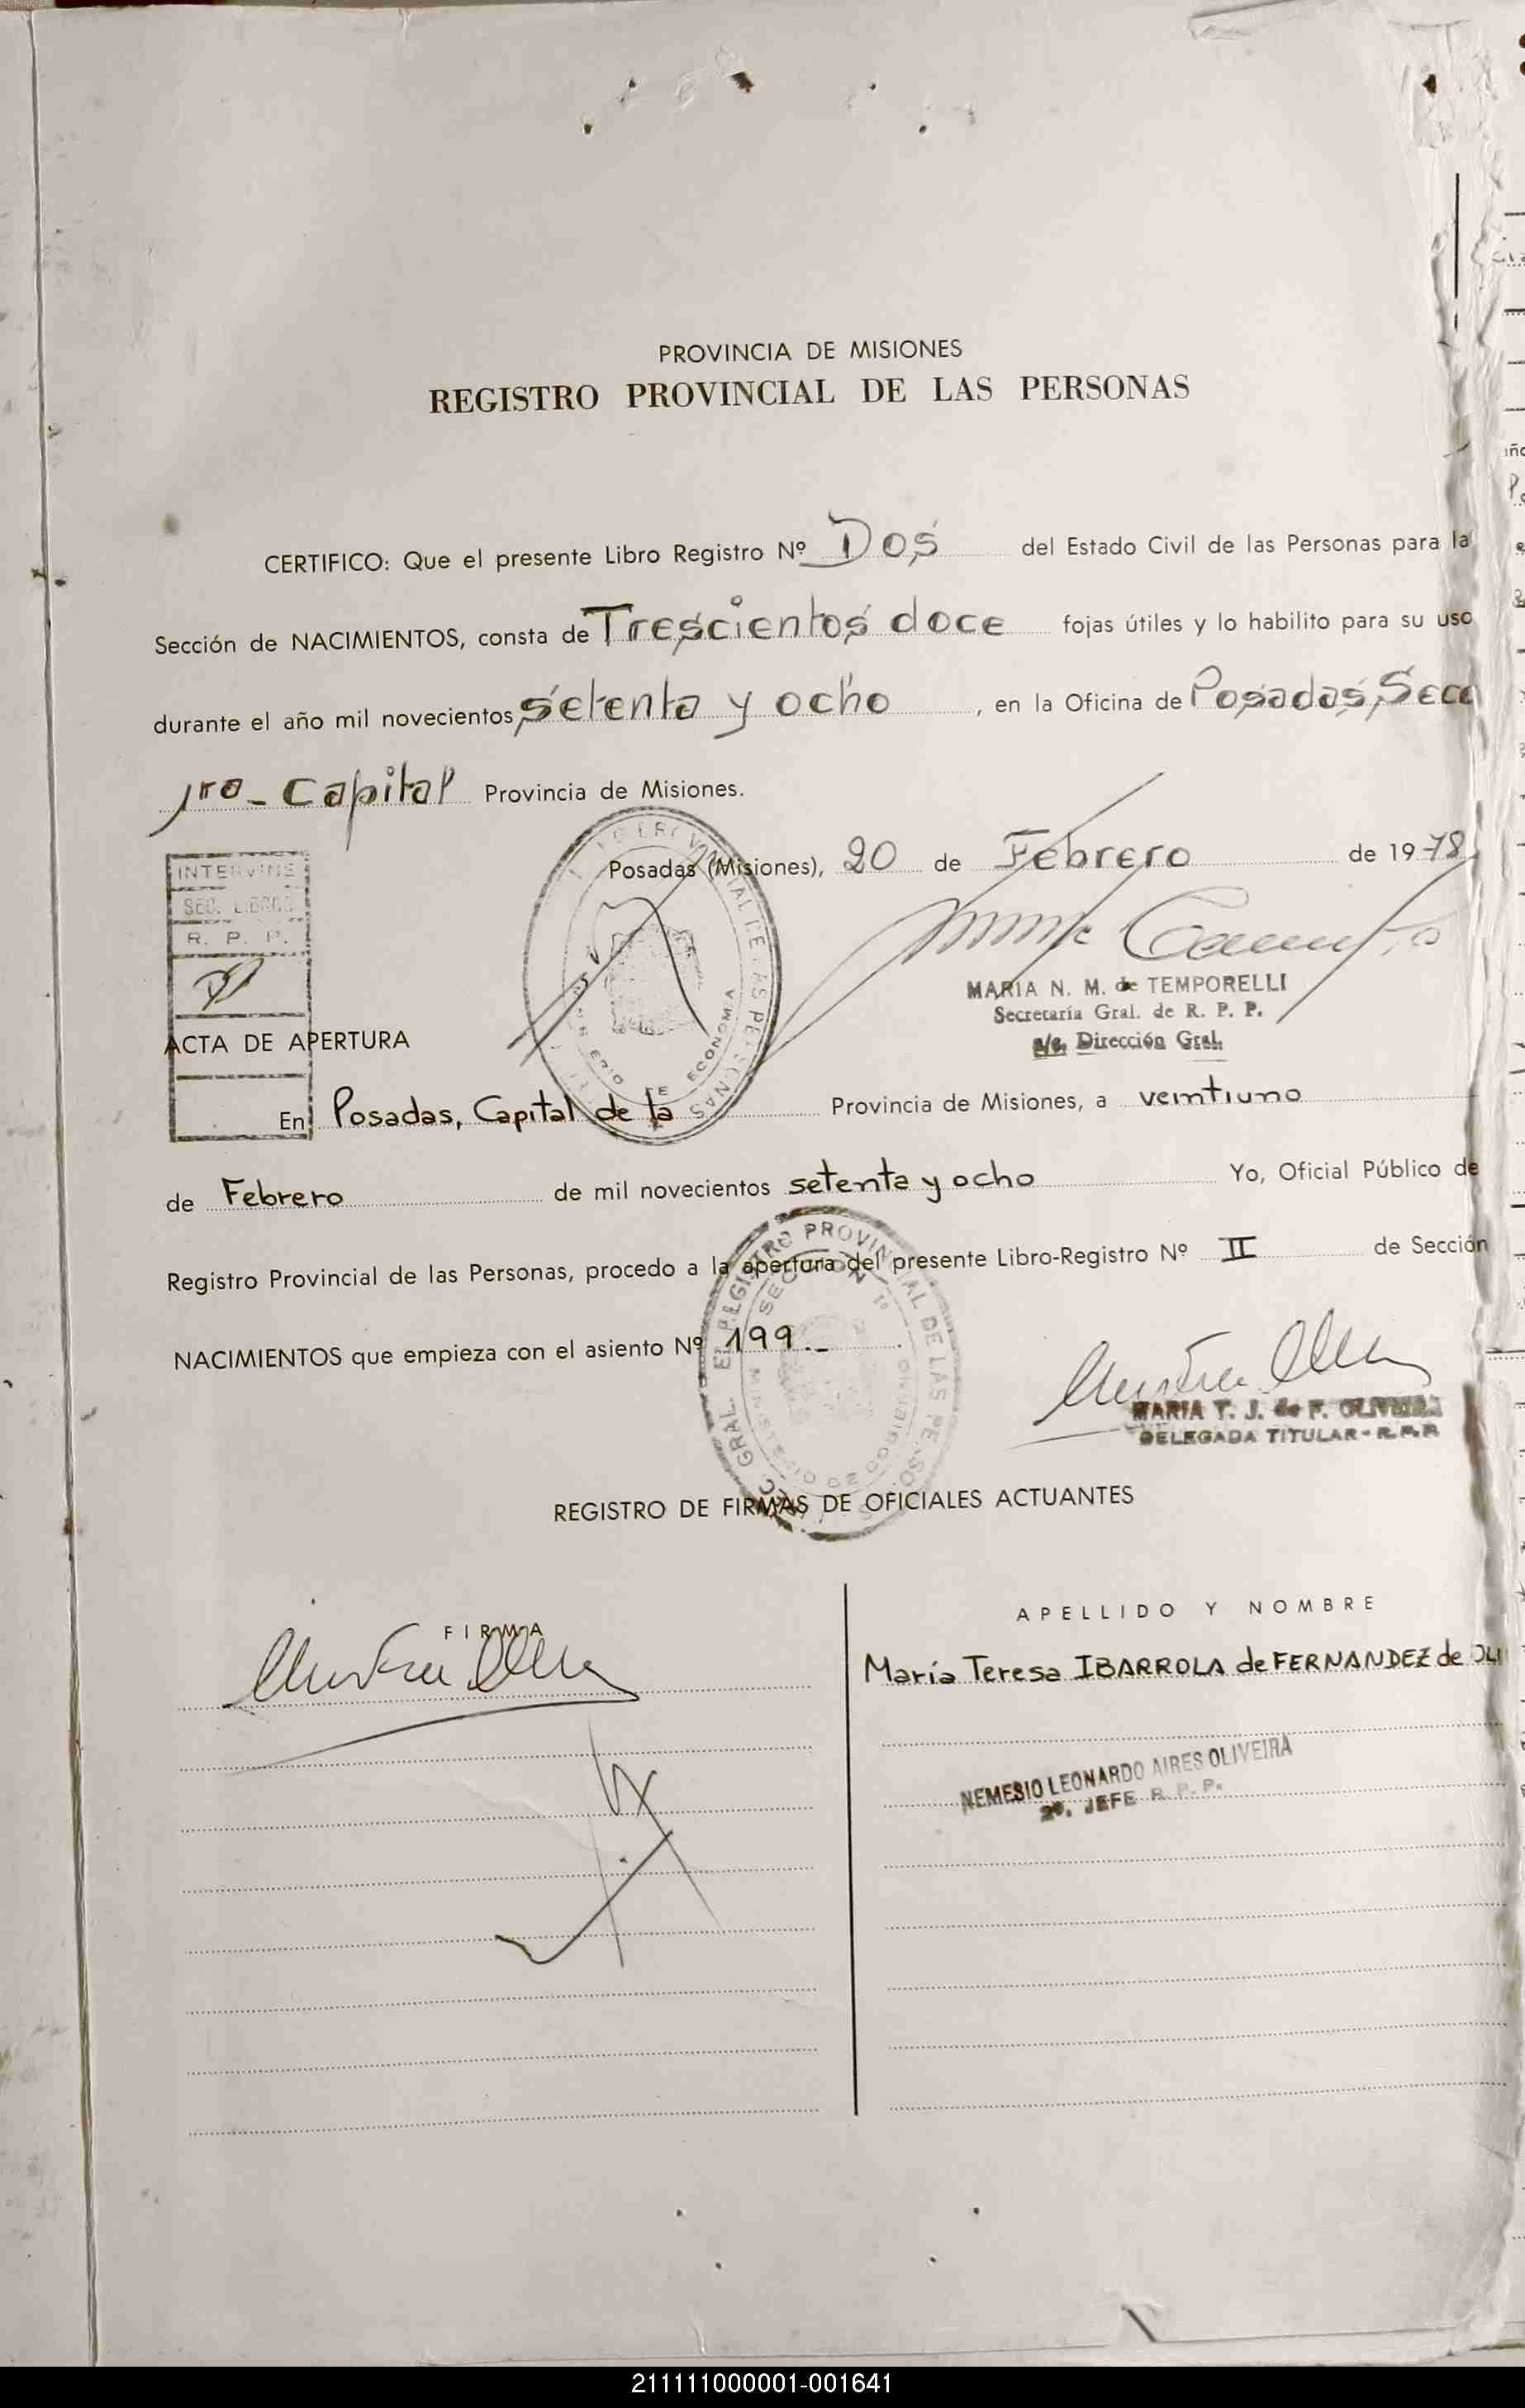 PROVINCIA DE MISIONES
REGISTRO PROVINCIAL DE LAS PERSONAS
CERTIFICO: Que el presente Libro Registro Nº Dos del Estado Civil de las Personas para la
Sección de NACIMIENTOS, consta de Trescientos doce fojas útiles y lo habilito para su uso
durante el año mil novecientos setenta y ocho, en la Oficina de Posadas, Secc
1ra- Capital Provincia de Misiones.
Posadas (Misiones), 20 de Febrero de 1978
INTERVINE
SEC. LIBROS
R. P. P.
MARIA N. M. de TEMPORELLI
Secretaría Gral. de R. P. P.
a/c. Dirección Gral.
ACTA DE APERTURA
En Posadas, Capital de la Provincia de Misiones, a veintiuno
de Febrero de mil novecientos setenta y ocho Yo, Oficial Público de
Registro Provincial de las Personas, procedo a la apertura del presente Libro-Registro Nº II de Sección
NACIMIENTOS que empieza con el asiento Nº 199.-
MARIA T. J. de F. OLIVEIRA
DELEGADA TITULAR - R.P.P.
REGISTRO DE FIRMAS DE OFICIALES ACTUANTES
FIRMA
APELLIDO Y NOMBRE
María Teresa IBARROLA de FERNANDEZ de OLI
NEMESIO LEONARDO AIRES OLIVEIRA
2º. JEFE R. P. P.
211111000001-001641